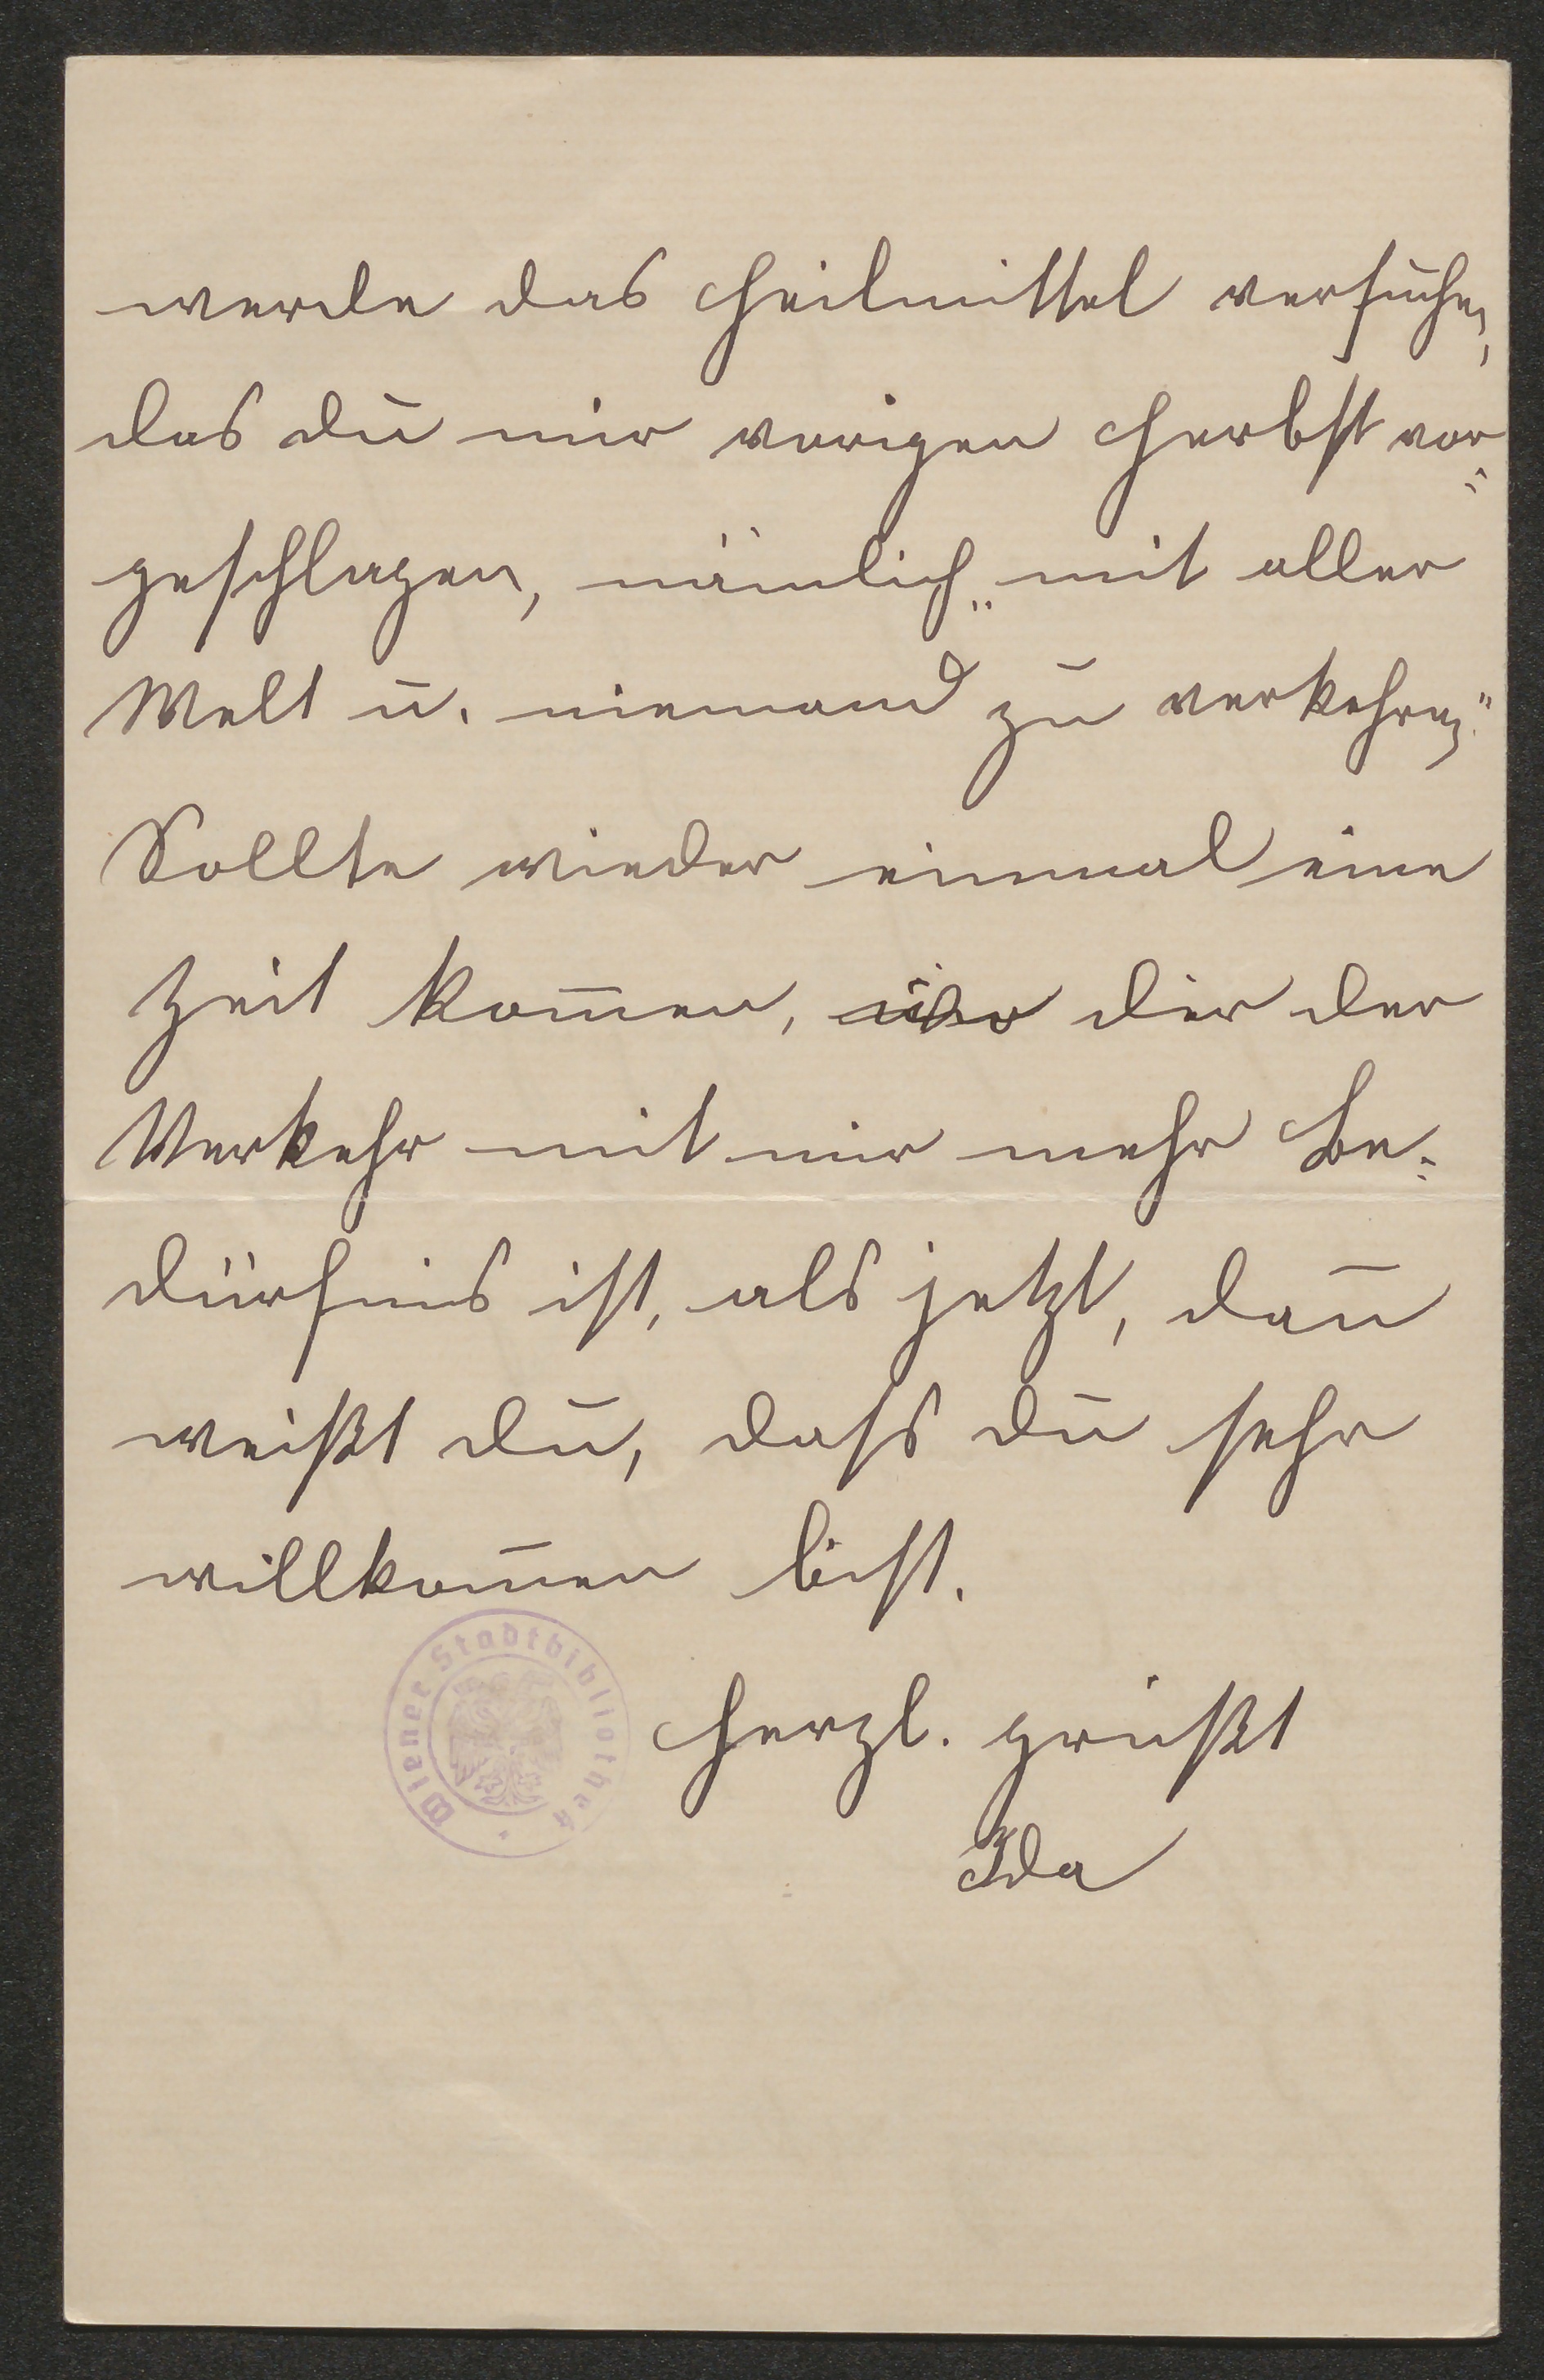 werde das Heilmittel versuchen,
das du mir vorigen Herbst vor=
geschlagen, nämlich „mit aller
Welt u. niemand zu verkehren."
Sollte wieder einmal eine
Zeit kom̅en, dir der
Verkehr mit mir mehr Be=
dürfnis ist, als jetzt, dan̅
weißt du, dass du sehr
willkom̅en bist.
Herzl. grüßt
Ida
Wiener Stadtbibliothek